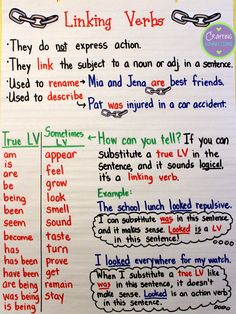 Linking Verbs
CRAFTING
CONNECTIONS
• They do not express action.
• They link the subject to a noun or adj. in a sentence.
• Used to rename → Mia and Jena are best friends.
• Used to describe.
→ Pat was injured in a car accident.
True LV
Sometimes LV
am
is
are
be
being
been
seem
become
has
has been
have been
are being
was being
appear
feel
grow
look
smell
sound
taste
turn
prove
get
remain
stay
← How can you tell? If you
can substitute a true LV in the
sentence, and it sounds logical,
it's a linking verb.
Example:
The school lunch looked repulsive.
I can substitute was in this sentence
and it makes sense. Looked is a LV
in this sentence!
I looked everywhere for my watch.
When I substitute a true LV like
was in this sentence, it doesn't
make sense. Looked is an action verb
in this sentence.